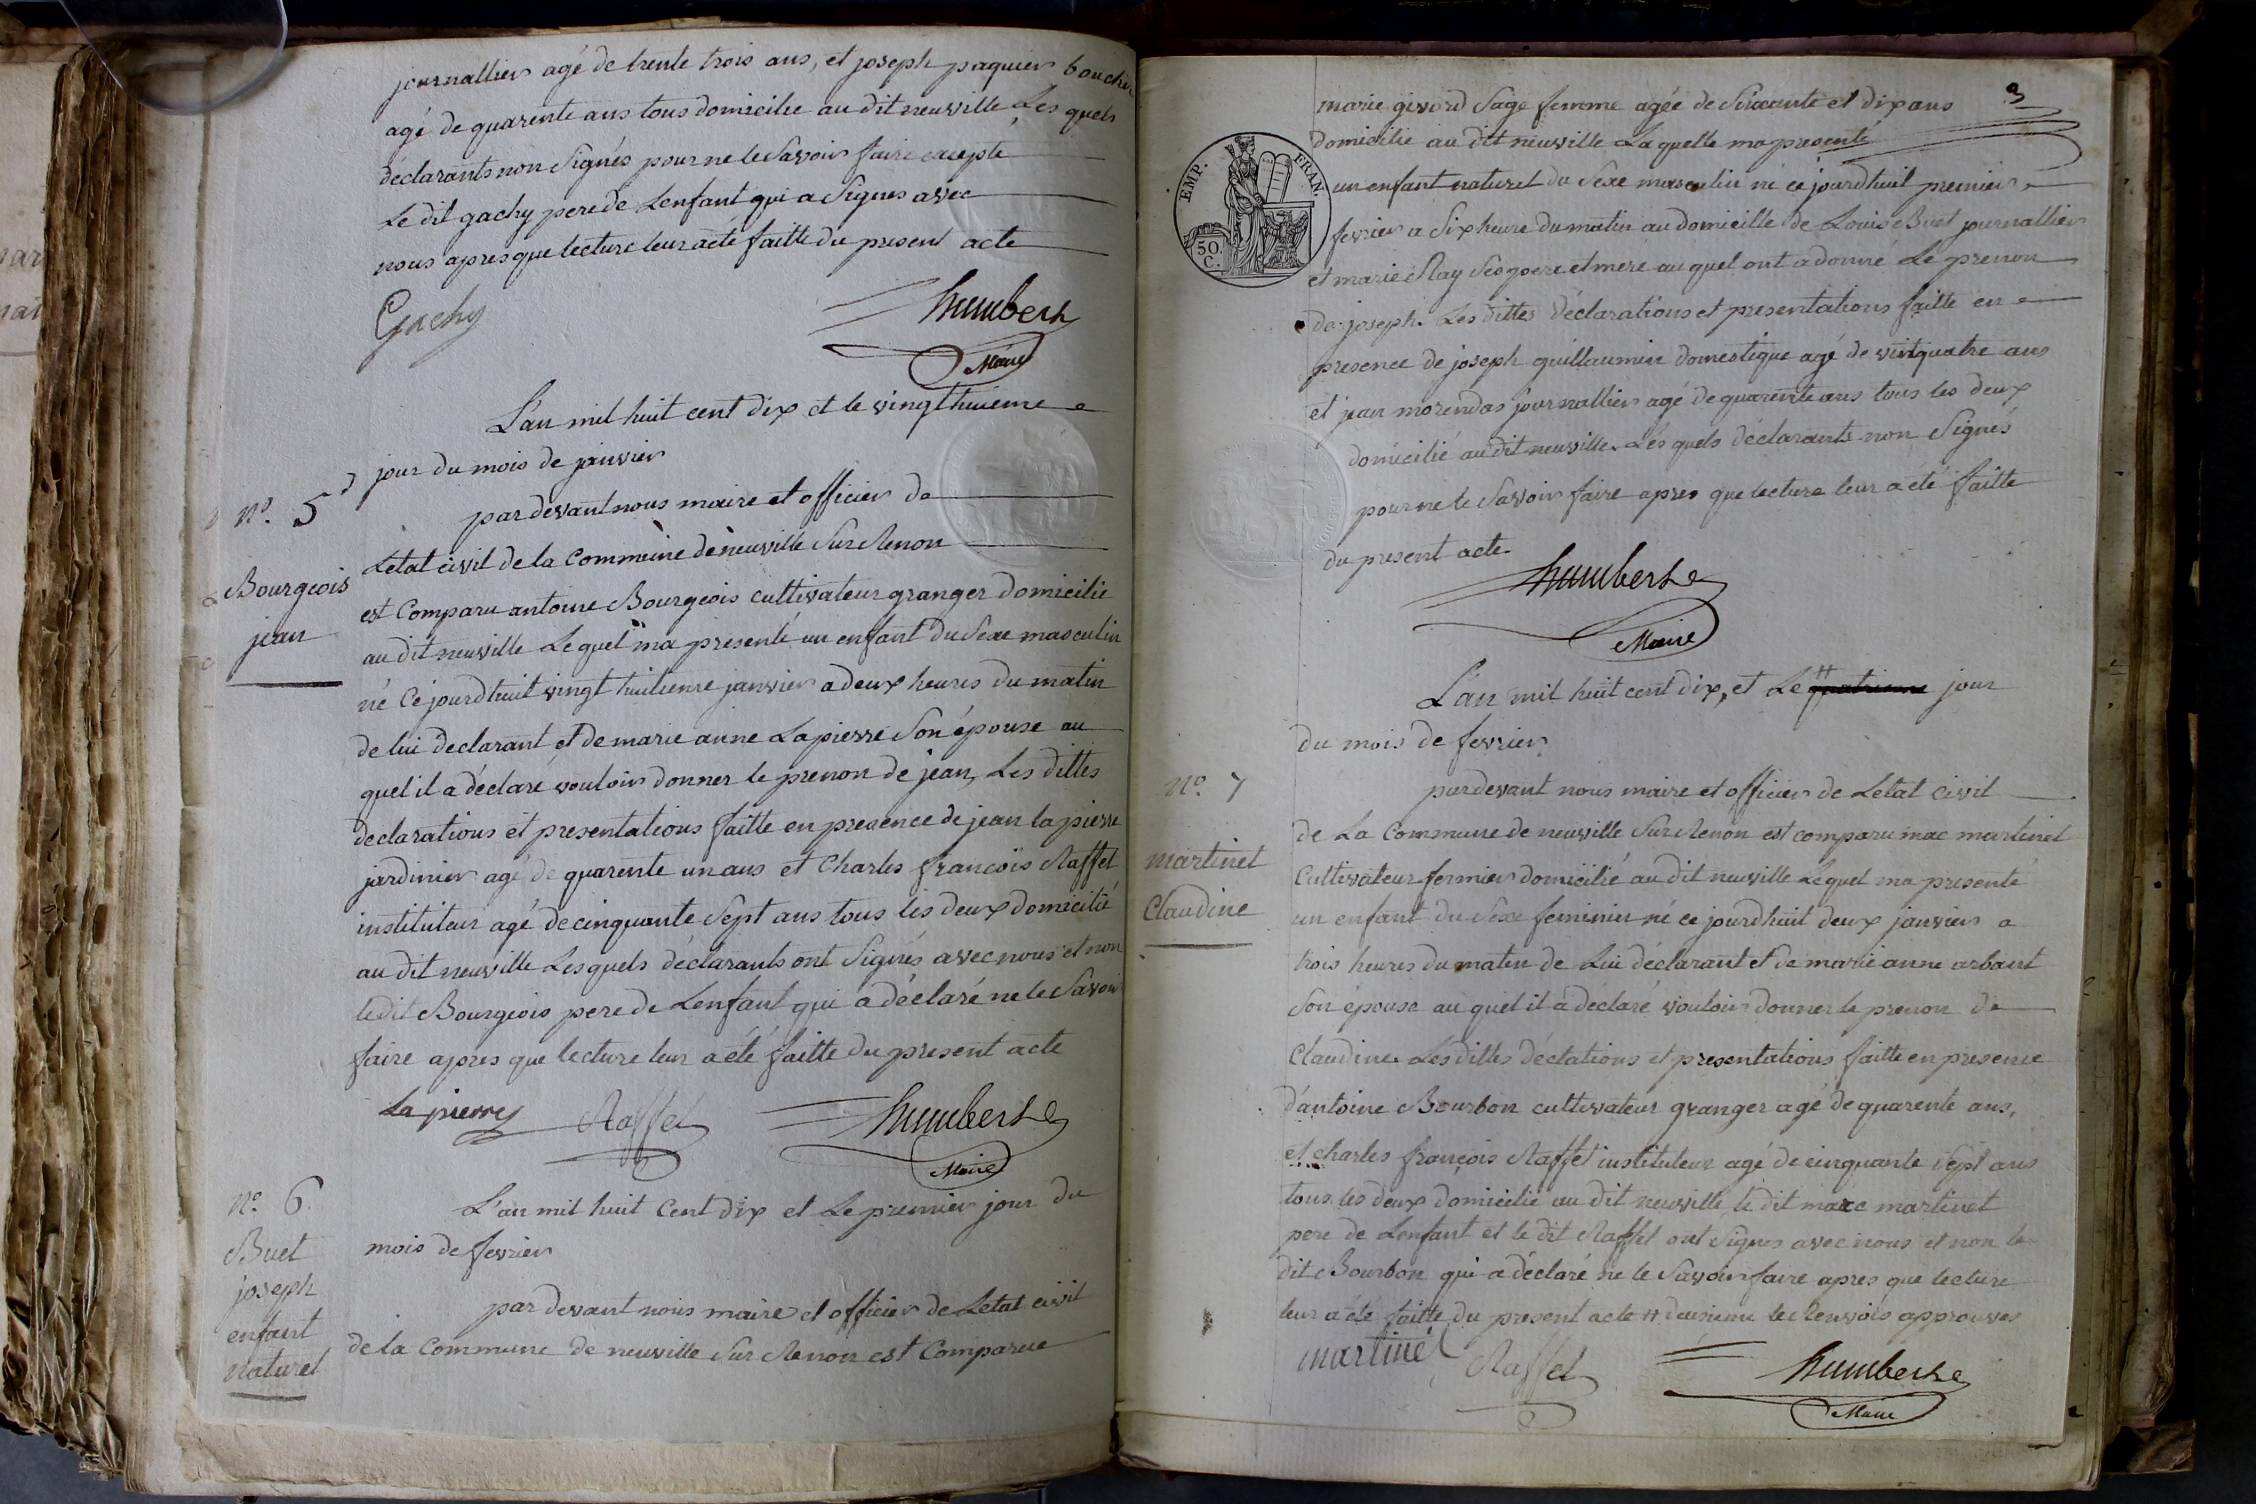 journallier agé de trente trois ans, et joseph paquier boucher
agé de quarente ans tous domicilie au dit neuville Les quels
déclarants non Signés pour ne le Savoir faire excepté
Le dit gachy pere de Lenfant qui a Signés avec
nous apres que lecture leur a eté faitte du present acte
Gachy
humbert
Maire
L'an mil huit cent dix et le vingt huiéme
jour du mois de janvier
nº. 5
par devant nous maire et officier de
Letat civil de la Commune de neuville Sur Renon
Bourgeois
est Comparu antoine Bourgeois cultivateur granger domicilie
jean
au dit neuville Lequel ma présenté un enfant du Sexe masculin
né Ce jourdhuit vingt huitieme janvier a deux heures du matin
de lui declarant et de marie anne Lapierre Son épouse au
quel il a déclaré vouloir donner le prenon de jean, Les dittes
declarations et presentations faitte en presence de jean lapierre
jardinier agé de quarente un ans et Charles françois Raffet
instituteur agé de cinquante Sept ans tous les deux domicilié
au dit neuville Lesquels déclarants ont Signés avec nous et non
le dit Bourgeois pere de Lenfant qui a déclaré ne le Savoir
faire apres que lecture leur a eté faitte du present acte
Lapierre
Raffet
humbert
Maire
nº. 6.
L'an mil huit Cent dix et Le premier jour du
Buet
mois de fevrier
joseph
enfant
par devant nous maire et officier de Letat civil
naturel
de la Commune de neuville Sur Renon est Comparue
3
marie givord Sage femme agée de Sixante et dix ans
domicilie au dit neuville Laquelle ma presenté
EMP. FRAN.
50 C.
un enfant naturel du Sexe masculin né ce jourdhuit premier
fevrier a Six heure du matin au domicille de Louis Buet journallier
et marie Ray Ses pere et mere au quel ont a donné Le prenon
de joseph. Les dittes déclarations et presentations faitte en
presence de joseph guillaumin domestique agé de vint quatre ans
et jean morendas journallier agé de quarente ans tous les deux
domicilié au dit neuville. Les quels déclarants non Signés
pour ne le Savoir faire apres que lecture leur a eté faitte
du present acte.
humbert
Maire
L'an mil huit cent dix, et Le # quatrieme jour
du mois de fevrier
nº. 7
par devant nous maire et officier de Letat civil
de La Commune de neuville Sur Renon est comparu mac martinet
martinet
Cultivateur fermier domicilié au dit neuville Lequel ma presenté
Claudine
un enfant du Sexe feminin né ce jourdhuit deux janvier a
trois heures du matin de Lui déclarant et de marie anne arbant
Son épouse au quel il a déclaré vouloir donner le prenon de
Claudine. Les dittes déctations et presentations faitte en presence
d'antoine Bourbon cultivateur granger agé de quarente ans,
et charles françois Raffet instituteur agé de cinquante Sept ans
tous les deux domicilié au dit neuville le dit marc martinet
pere de Lenfant et le dit Raffet ont Signes avec nous et non le
dit Bourbon qui a déclaré ne le Savoir faire apres que lecture
leur a eté faitte du present acte # deuxieme le Renvois approuves
martinet
Raffet
humbert
Maire